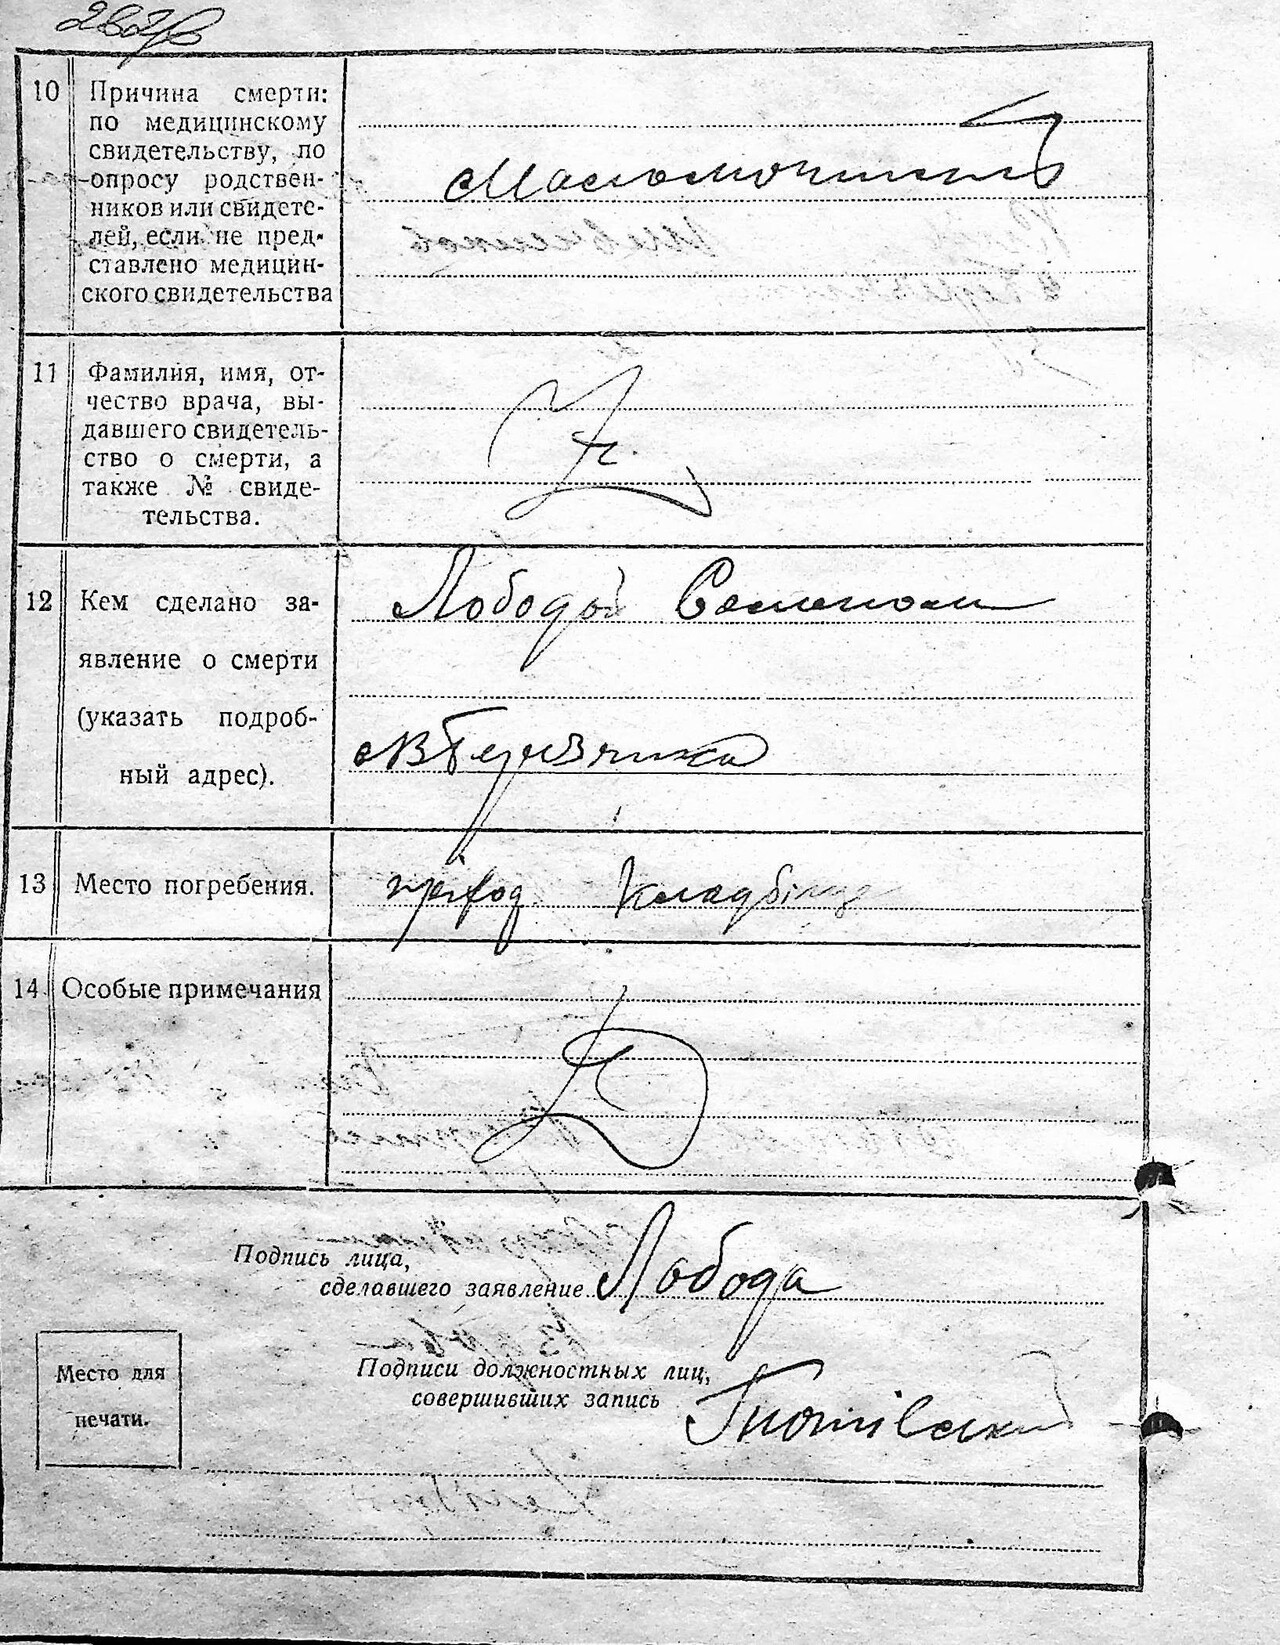 10 Причина смерти:
по медицинскому
свидетельству, по
опросу родствен-
ников или свидете-
лей, если не пред-
ставлено медицин-
ского свидетельства
11 Фамилия, имя, от-
чество врача, вы-
давшего свидетель-
ство о смерти, а
также № свиде-
тельства.
12 Кем сделано за-
явление о смерти
(указать подроб-
ный адрес).
Лободой Семеном
13 Место погребения.
кладбіще
14 Особые примечания
Подпись лица,
сделавшего заявление Лобода
Место для
печати.
Подписи должностных лиц,
совершивших запись